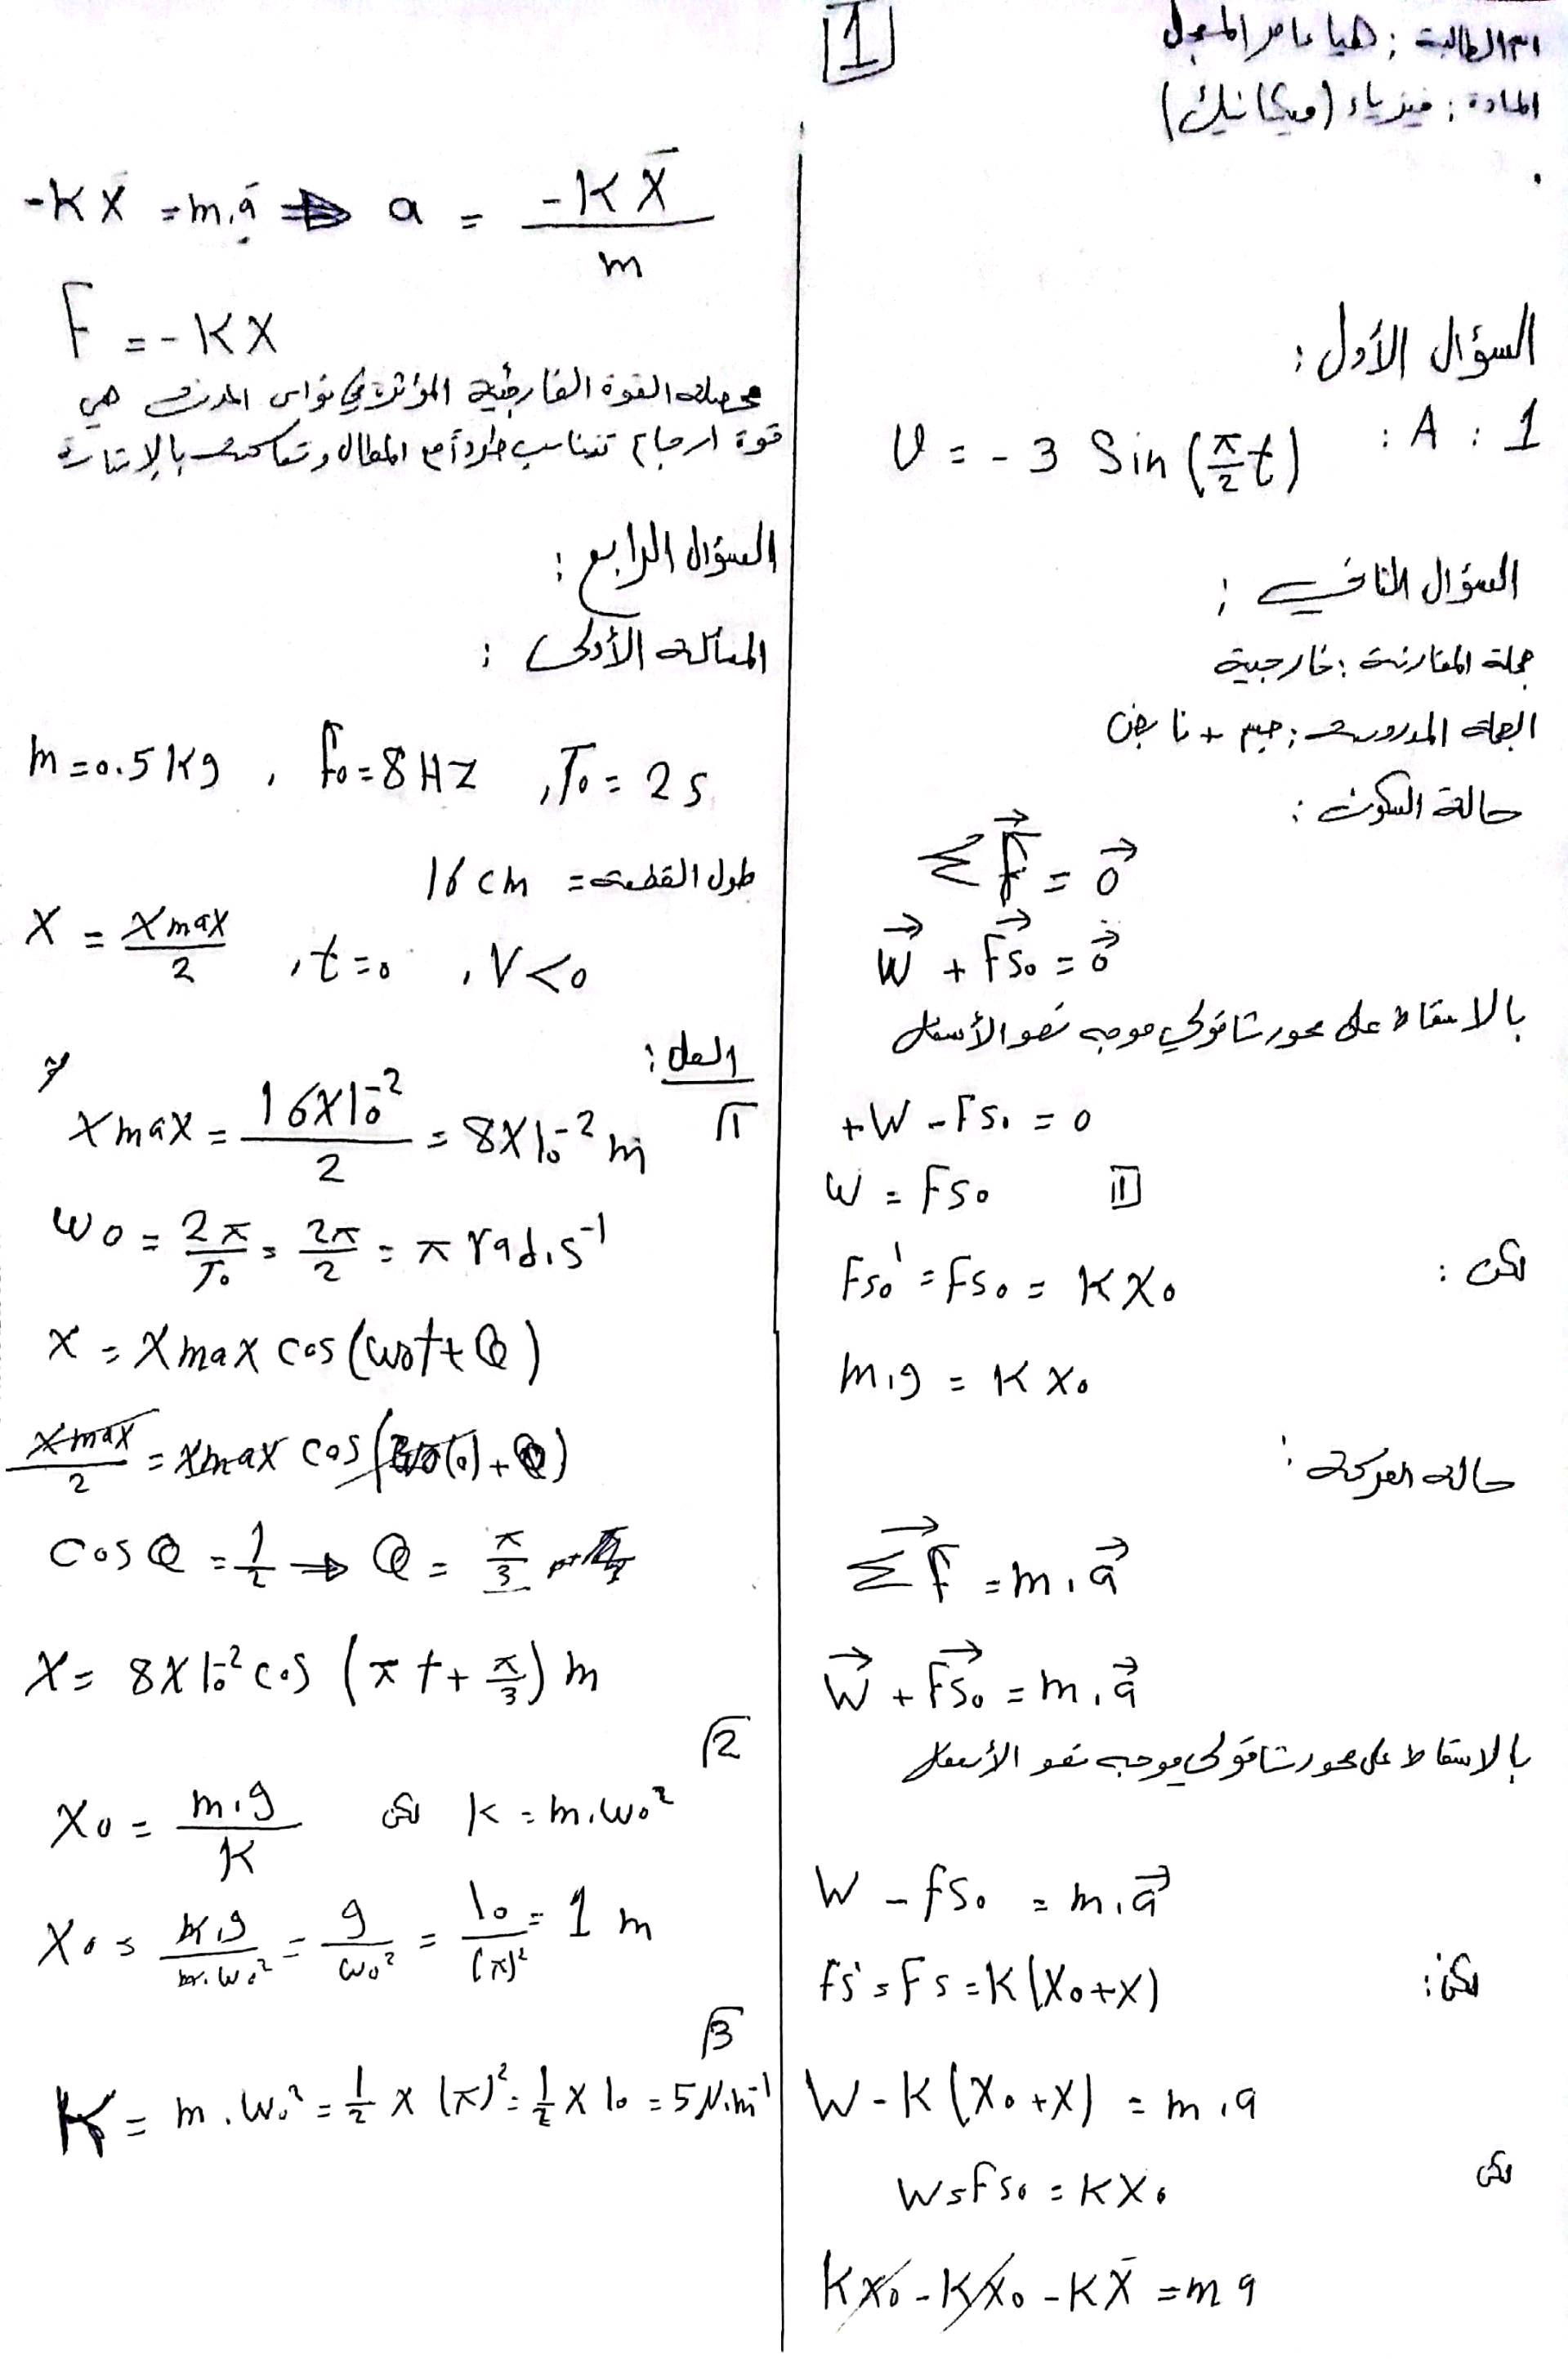 1
اسم الطالبة : هيا عامر المعجل
المادة : فيزياء (ميكانيك)
السؤال الأول :
1 : A : v = -3 Sin (π/2 t)
السؤال الثاني :
جملة المقارنة : خارجية
الجملة المدروسة : جسم + نابض
حالة السكون :
Σ F⃗ = 0⃗
W⃗ + F⃗s₀ = 0⃗
بالاسقاط على محور شاقولي موجه نحو الأسفل
+W - Fs₀ = 0
W = Fs₀ 1
لكن : Fs₀' = Fs₀ = K X₀
m.g = K X₀
حالة الحركة :
Σ F⃗ = m.a⃗
W⃗ + F⃗s₀ = m.a⃗
بالاسقاط على محور شاقولي موجه نحو الأسفل
W - fs₀ = m.a⃗
لكن : fs' = Fs = K(X₀+X)
W - K (X₀+X) = m.a
لكن W = fs₀ = K X₀
K X₀ - K X₀ - K X̄ = m a
-K X̄ = m.ā ⇒ a = -K X̄ / m
F = -K X
محصلة القوة الخارجية المؤثرة في نواس المرن هي
قوة ارجاع تتناسب طرداً مع المطال وتعاكسه بالإشارة
السؤال الرابع :
المسألة الأولى :
m = 0.5 Kg , f₀ = 8 HZ , T₀ = 2 s
طول القطعة = 16 cm
X = Xmax/2 , t=0 , V<0
الحل :
1 Xmax = 16×10⁻² / 2 = 8×10⁻² m
ω₀ = 2π/T₀ = 2π/2 = π rad.s⁻¹
X = Xmax cos (ω₀t + Q)
Xmax/2 = Xmax cos (ω₀(0) + Q)
cos Q = 1/2 ⇒ Q = π/3
X = 8×10⁻² cos (π t + π/3) m
2
X₀ = m.g / K لكن K = m.ω₀²
X₀ = m.g / m.ω₀² = g / ω₀² = 10 / (π)² = 1 m
3
K = m.ω₀² = 1/2 × (π)² = 1/2 × 10 = 5 N.m⁻¹